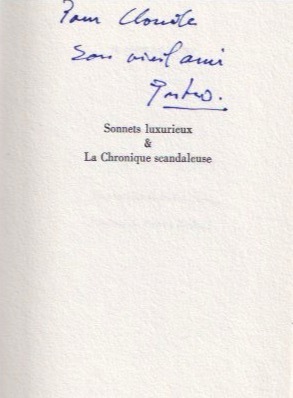 Pour Claude
son vieil ami
Sonnets luxurieux
&
La Chronique scandaleuse